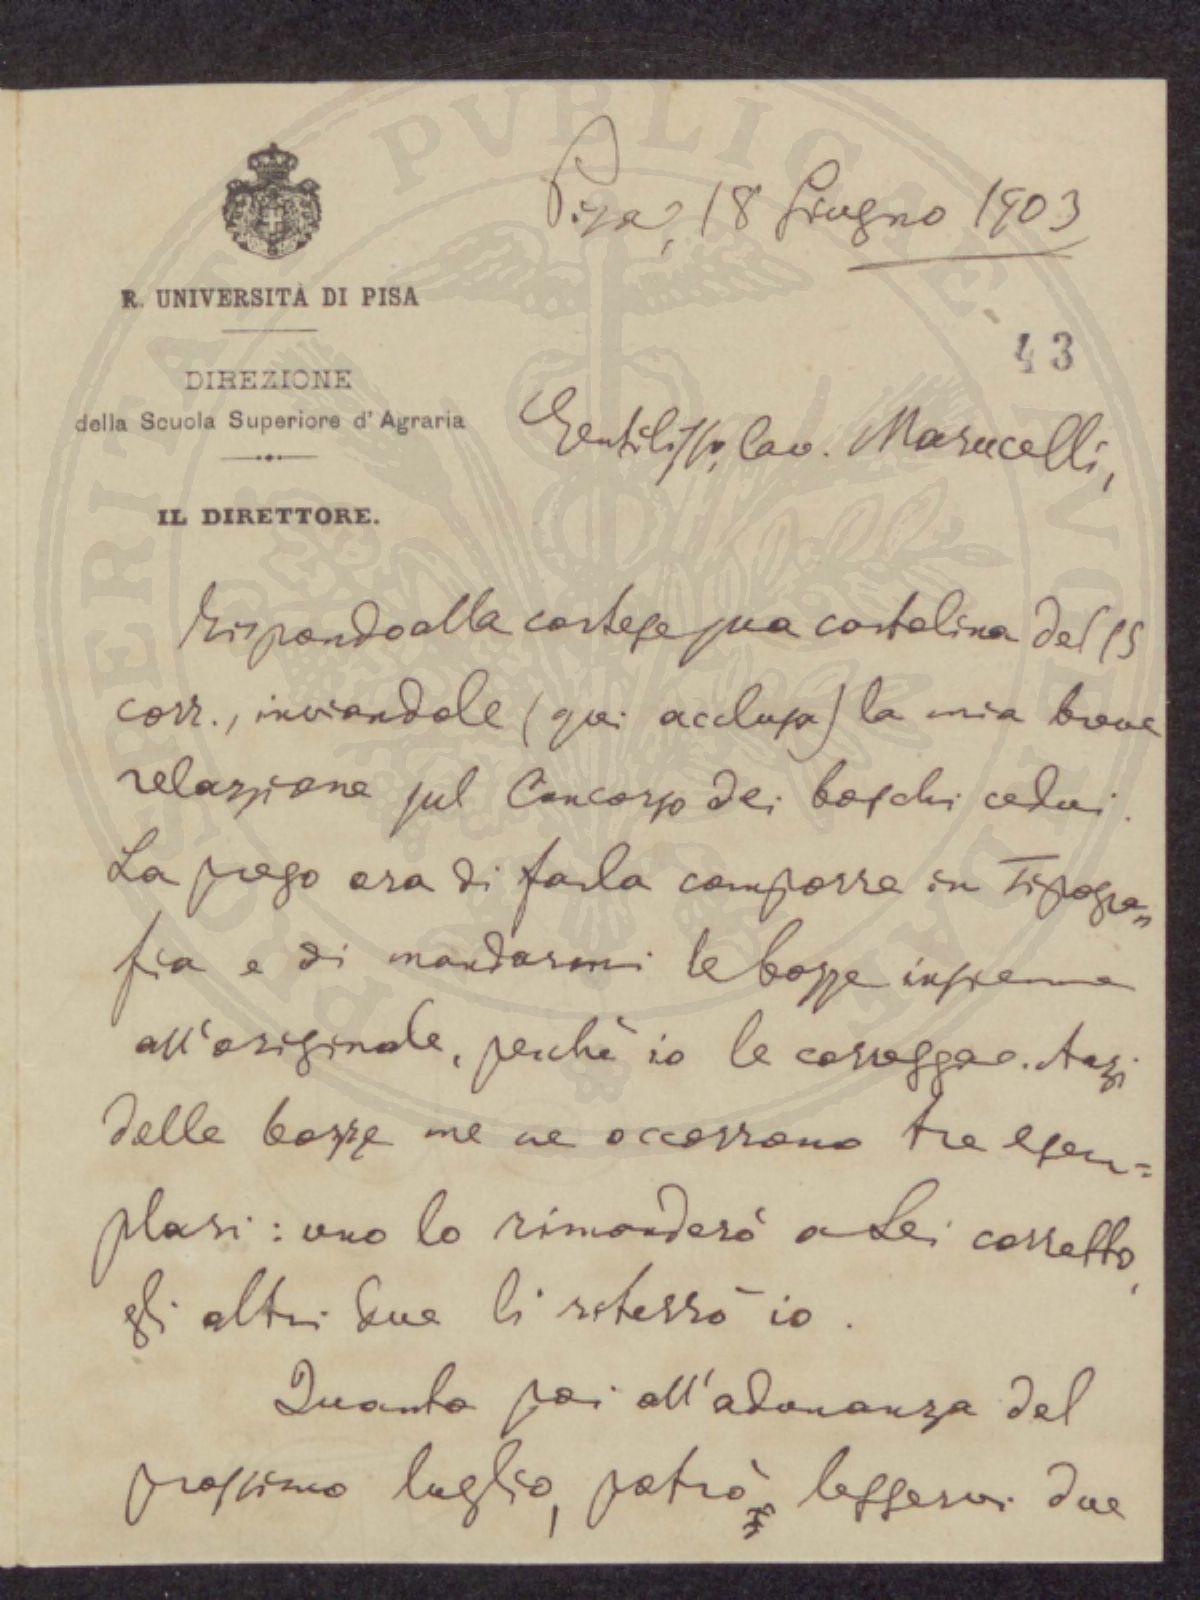 Pisa, 18 Giugno 1903
R. UNIVERSITÀ DI PISA
43
DIREZIONE
della Scuola Superiore d'Agraria
Gentiliss.º Cav. Marucelli,
IL DIRETTORE.
Rispondo alla cortese sua cartolina del 15
corr., inviandole (qui acclusa) la mia breve
relazione sul Concorso dei boschi cedui.
La prego ora di farla comporre in Tipogra„
fia e di mandarmi le bozze insieme
all'originale, perchè io le corregga. Anzi
delle bozze me ne occorrono tre esem=
plari: uno lo rimanderò a Lei corretto,
gli altri due li riterrò io.
Quanto poi all'adunanza del
prossimo luglio, potrò leggervi due
PROSPERITATI PVBLICAE AVGENDAE